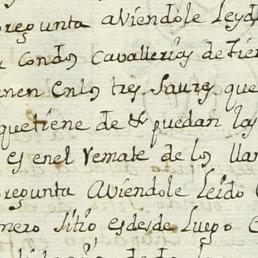 pregunta aviendole leyd
condos cavallerias de tier
nen enlos tres saures que
que tiene de puedan las
es enel remate de los llan
pregunta aviendole leido
mero sitio es desde luego